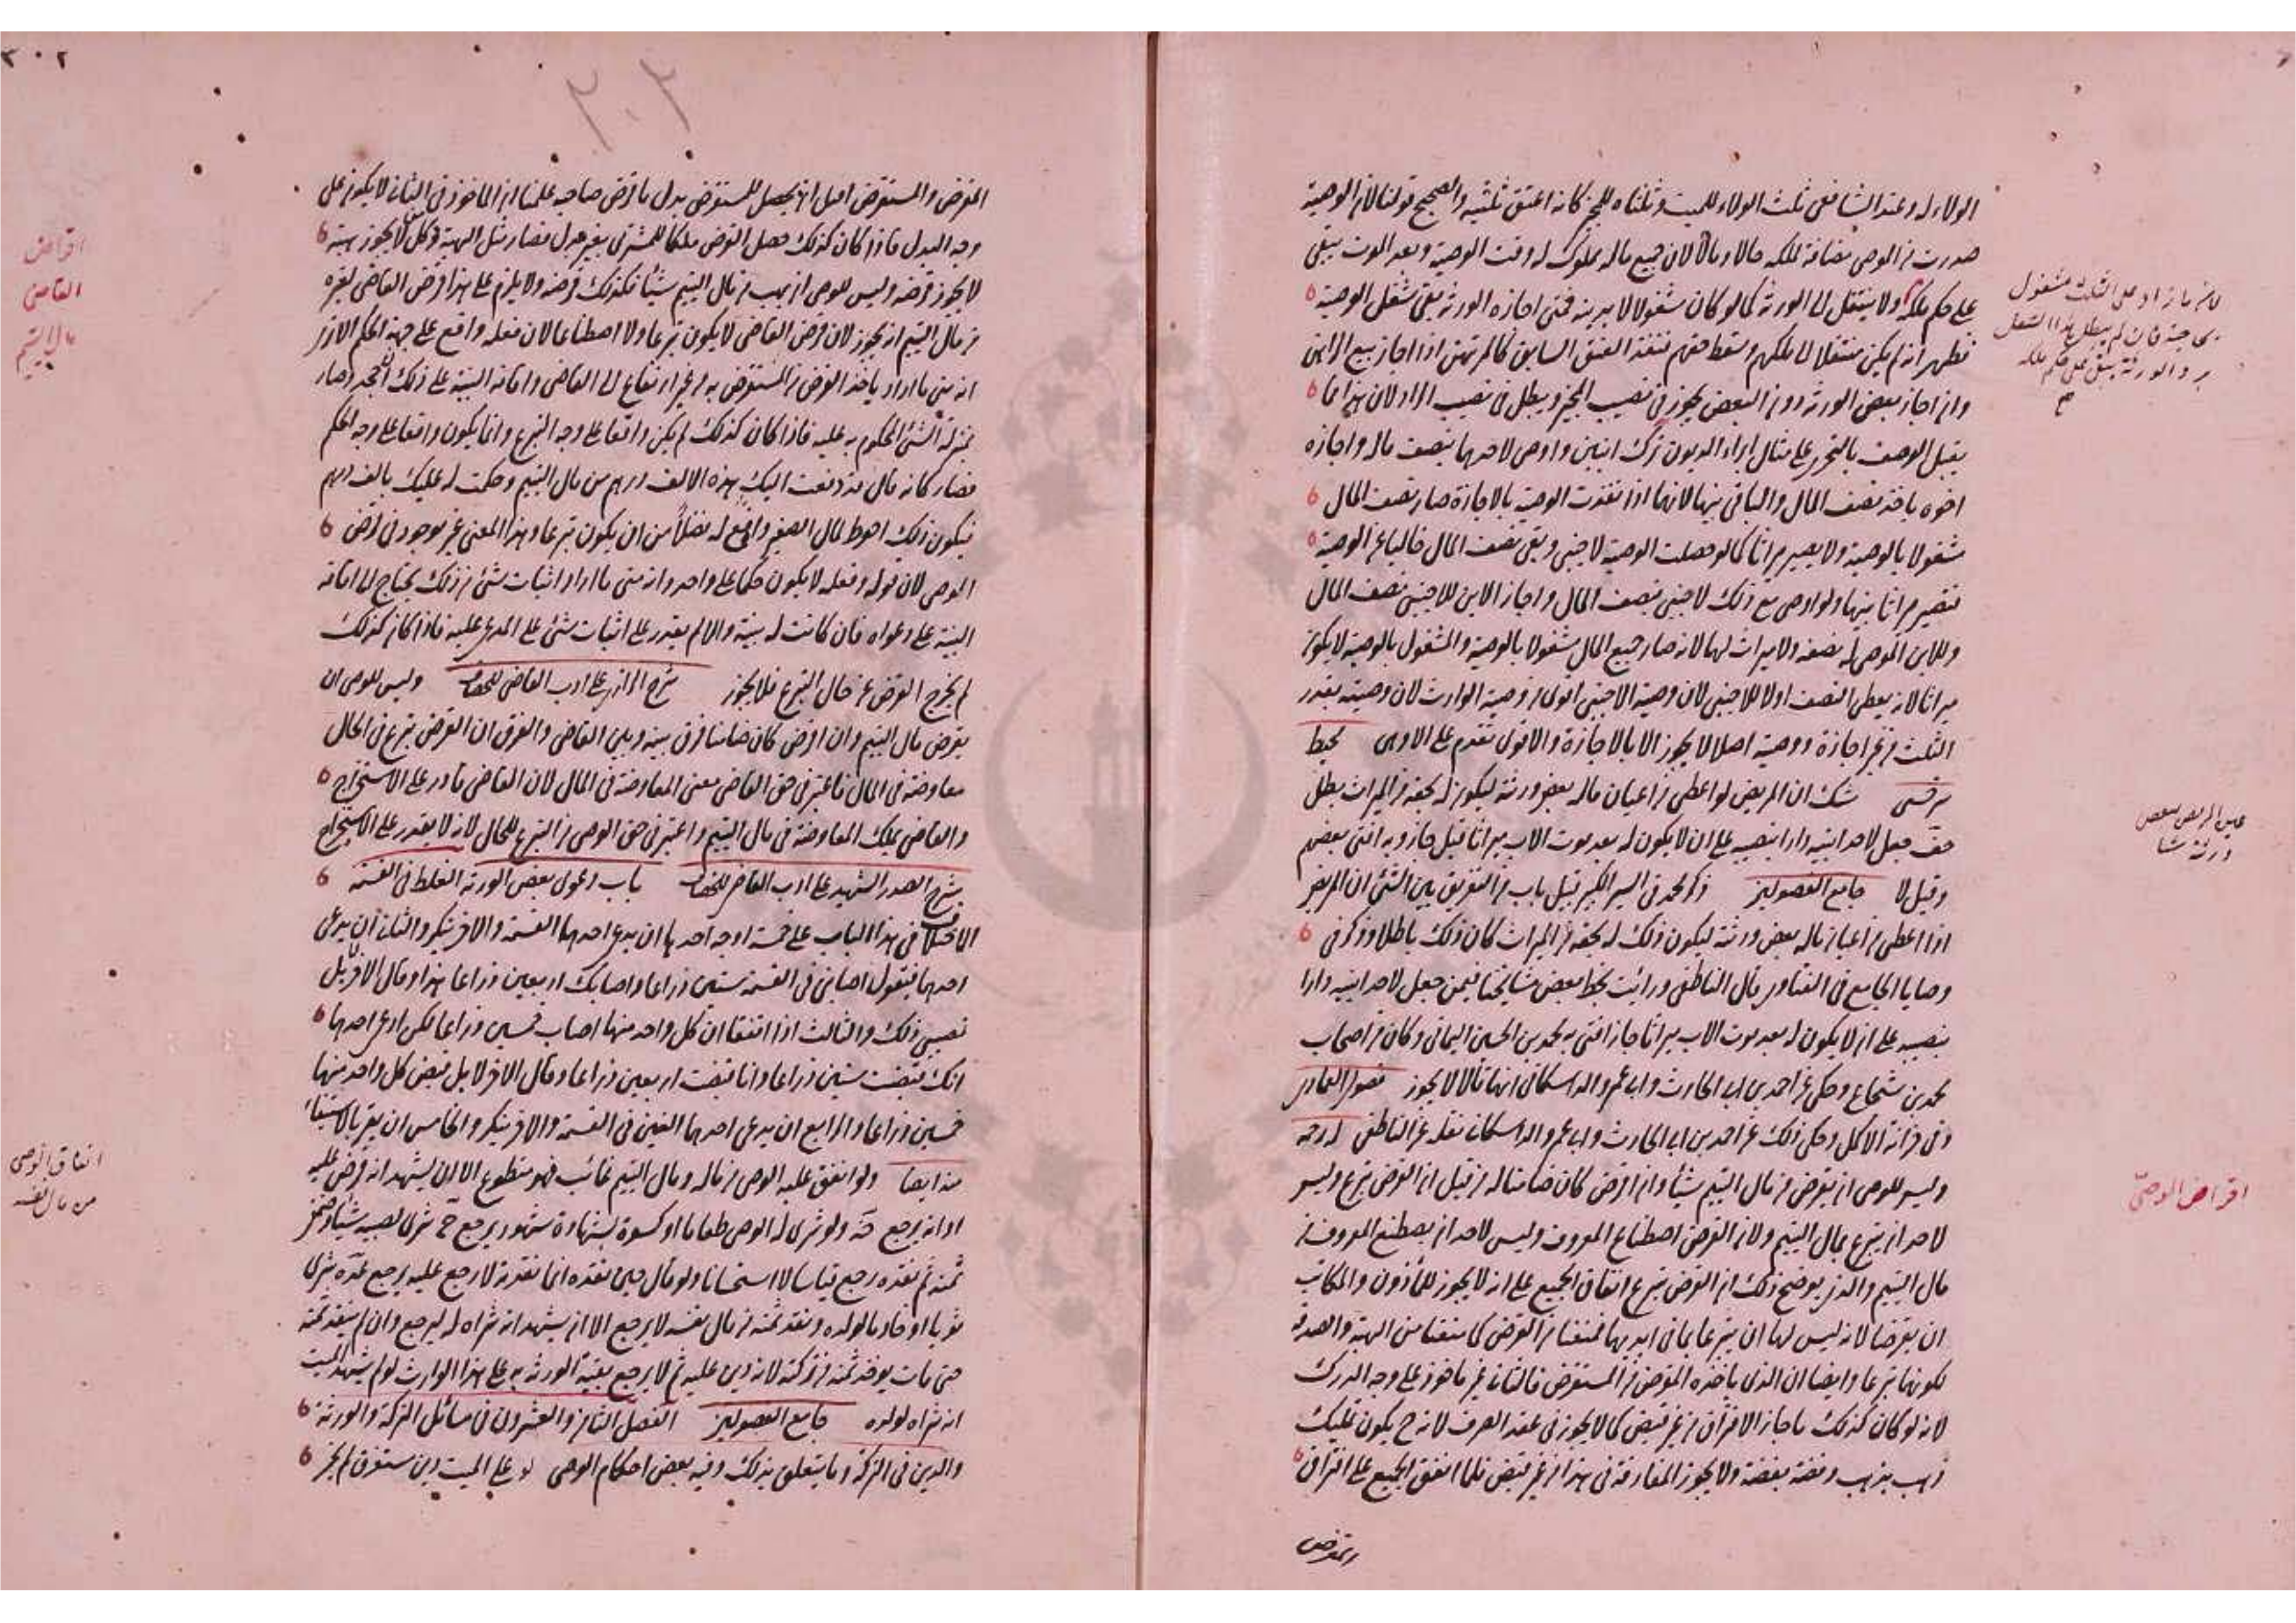 الولاء له وعند الشافعي ثلث الولاء للميت وثلثاه للمجيز كانه اعتق ثلثيه والصحيح قولنا لان الوصية
صدرت من الموصي مضافة لملكه حالا ومآلا لان جميع ماله مملوك له وقت الوصية وبعد الموت يبقى
على حكم ملكه ولا ينتقل الى الورثة كما لو كان مشغولا لا بدينه فمتى اجازه الورثة بقي شغل الوصية
فظهر انه لم يكن منتقلا الى ملكهم وسقط حقهم فنفذ العتق السابق كالمرتهن اذا اجاز بيع الراهن
وان اجاز بعض الورثة دون البعض يجوز في نصيب المجيز ويبطل في نصيب الراد لان هذا مما
يقبل الوصف بالتجزي على مثال ابراء الديون ترك ابنين واوصى لاحدهما بنصف ماله واجازه
اخوه ياخذ نصف المال والباقي بينهما لانهما اذا نفذت الوصية بالاجازة صار نصف المال
مشغولا بالوصية ولا يصير ميراثا كما لو حصلت الوصية لاجنبي وبقي نصف المال خاليا عن الوصية
فتصير ميراثا بينهما ولو اوصى مع ذلك لاجنبي بنصف المال واجاز الابن للاجنبي نصف المال
وللابن الموصى له نصفه ولا ميراث لهما لانه صار جميع المال مشغولا بالوصية والمشغول بالوصية لا يكون
ميراثا لانه يعطى النصف اولا للاجنبي لان وصية الاجنبي اقوى من وصية الوارث لان وصيته بقدر
الثلث من غير اجازة ووصية اصلا لا يجوز الا بالاجازة والاقوى تقدم على الاوهى محيط
سرخسي شك ان المريض لو اعطى من اعيان ماله بعض ورثته ليكون له بحقه من الميراث بطل
حقه جعل لاحد ابنيه دارا بنصيبه على ان لا يكون له بعد موت الاب ميراثا قيل جاز وبه افتى بعضهم
وقيل لا جامع الفصولين ذكر محمد في السير الكبير قبيل باب من التفريق بين الشئ ان المريض
اذا اعطى من اعيان ماله بعض ورثته ليكون ذلك له بحقه من الميراث كان ذلك باطلا وذكر في
وصايا الجامع في الفتاوى قال الناطفي ورأيت بخط بعض مشايخنا فيمن جعل لاحد ابنيه دارا
بنصيبه على ان لا يكون له بعد موت الاب ميراثا جاز افتى به محمد بن الحسين اليماني وكان من اصحاب
محمد بن شجاع وحكى عن احمد بن ابي الحارث وابي عمرو الداسكاني انهما قالا لا يجوز فصول العمادي
وفي خزانة الاكمل وحكى ذلك عن احمد بن ابي الحارث وابي عمرو الداسكاني نقله عن الناطفي
وليس للوصي ان يقرض من مال اليتيم شيئا وان اقرض كان ضامنا له من قبل ان القرض تبرع وليس
لاحد ان يتبرع بمال اليتيم ولان القرض اصطناع المعروف وليس لاحد ان يصطنع المعروف من
مال اليتيم والذي يوضح ذلك ان القرض تبرع اتفاق الجميع على انه لا يجوز للمأذون والمكاتب
ان يقرضا لانه ليس لهما ان يتبرعا بما في ايديهما فمنعا من القرض كما منعا من الهبة والصدقة
لكونهما تبرعا وايضا ان الذي ياخذه المقرض من المستقرض في الثاني غير ماخوذ على وجه الدرك
لانه لو كان كذلك ما جاز الافتراق من غير قبض كما لا يجوز في عقد الصرف لانه ح يكون تمليك
ذهب بذهب وفضة بفضة ولا يجوز المفارقة في هذا من غير قبض فلما اتفق الجميع على افتراق
المقرض
لان ما زاد على الثلث مشغول
بحاجته فان لم يبطل هذا الشغل
برد الورثة يبقى على حكم ملكه
صح
تعيين المريض لبعض
ورثته شيئا
اقراض الوصي
٣٠٢
٣٠٢
المقرض والمستقرض قبل ان يحصل للمستقرض بدل ما اقرض صاحبه علمنا ان الماخوذ في الثاني لا يكون على
وجه البدل فاذا كان كذلك حصل القرض ملكا للمشتري بغير بدل فصار مثل الهبة وكل من لا يجوز هبته
لا يجوز قرضه وليس للوصي ان يهب من مال اليتيم شيئا فكذلك قرضه ولا يلزم على هذا قرض القاضي لغيره
من مال اليتيم انه يجوز لان قرض القاضي لا يكون تبرعا ولا اصطناعا لان فعله واقع على جهة الحكم الا ترى
انه متى ما اراد ياخذ القرض من المستقرض به من غير ارتفاع الى القاضي واقامة البينة على ذلك ان جحد فصار
بمنزلة الشئ المحكوم به عليه فاذا كان كذلك لم يكن واقعا على وجه التبرع وانما يكون واقعا على وجه الحكم
فصار كانه قال قد دفعت اليك هذه الالف درهم من مال اليتيم وحكمت له عليك بالف درهم
فيكون ذلك احوط لمال الصغير وانفع له فضلا من ان يكون تبرعا وهذا المعنى غير موجود في قرض
الوصي لان قوله وفعله لا يكون حكما على واحد وانه متى ما اراد اثبات شئ من ذلك يحتاج الى اقامة
البينة على دعواه فان كانت له بينة والا لم يقدر على اثبات شئ على المدعى عليه فاذا كان كذلك
لم يخرج القرض عن حال التبرع فلا يجوز شرح الرازي على ادب القاضي للخصاف وليس للوصي ان
يقرض مال اليتيم وان اقرض كان ضامنا فرق بينه وبين القاضي والفرق ان القرض تبرع في الحال
معاوضة في المال فاعتبر في حق القاضي معنى المعاوضة في المال لان القاضي قادر على الاستخراج
والقاضي يملك المعاوضة في مال اليتيم واعتبر في حق الوصي من التبرع للحال لانه لا يقدر على الاستخراج
شرح الصدر الشهيد على ادب القاضي للخصاف باب دعوى بعض الورثة الغلط في القسمة
الاختلاف في هذا الباب على خمسة اوجه احدها ان يدعي احدهما القسمة والاخر ينكر والثاني ان يدعي
احدهما فيقول اصابني في القسمة ستين ذراعا واصابك اربعين ذراعا هذا وقال الاخر بل
نصيبي ذلك والثالث اذا اتفقا ان كل واحد منهما اصاب خمسين ذراعا لكن ادعى احدهما
انك قبضت ستين ذراعا وانا قبضت اربعين ذراعا وقال الاخر لا بل قبض كل واحد منهما
خمسين ذراعا والرابع ان يدعي احدهما الغبن في القسمة والاخر ينكر والخامس ان يقر بالاستيفاء
منه ايضا ولو انفق عليه الوصي من ماله ومال اليتيم غائب فهو متطوع الا ان يشهد انه قرض عليه
او انه يرجع ولو شرى له الوصي طعاما او كسوة بشهادة شهود يرجع شرى لصبيه شيئا وضمن
ثمنه ثم نقده رجع قياسا لا استحسانا ولو قال حين نقده انما نقدته لارجع عليه يرجع شرى
ثوبا او خادما لولده ونقد ثمنه من مال نفسه لا يرجع الا ان يشهد انه شراه له ليرجع وان لم ينقد ثمنه
حتى مات يؤخذ ثمنه من تركته لانه دين عليه ثم لا يرجع بقية الورثة به على هذا الوارث لو لم يشهد الميت
انه شراه لولده جامع الفصولين الفصل الثامن والعشرون في مسائل التركة والورثة
والدين في التركة وما يتعلق بذلك وفيه بعض احكام الوصي لو على الميت دين مستغرق لم يجز
اقراض
القاضي
مال اليتيم
انفاق الوصي
من مال نفسه